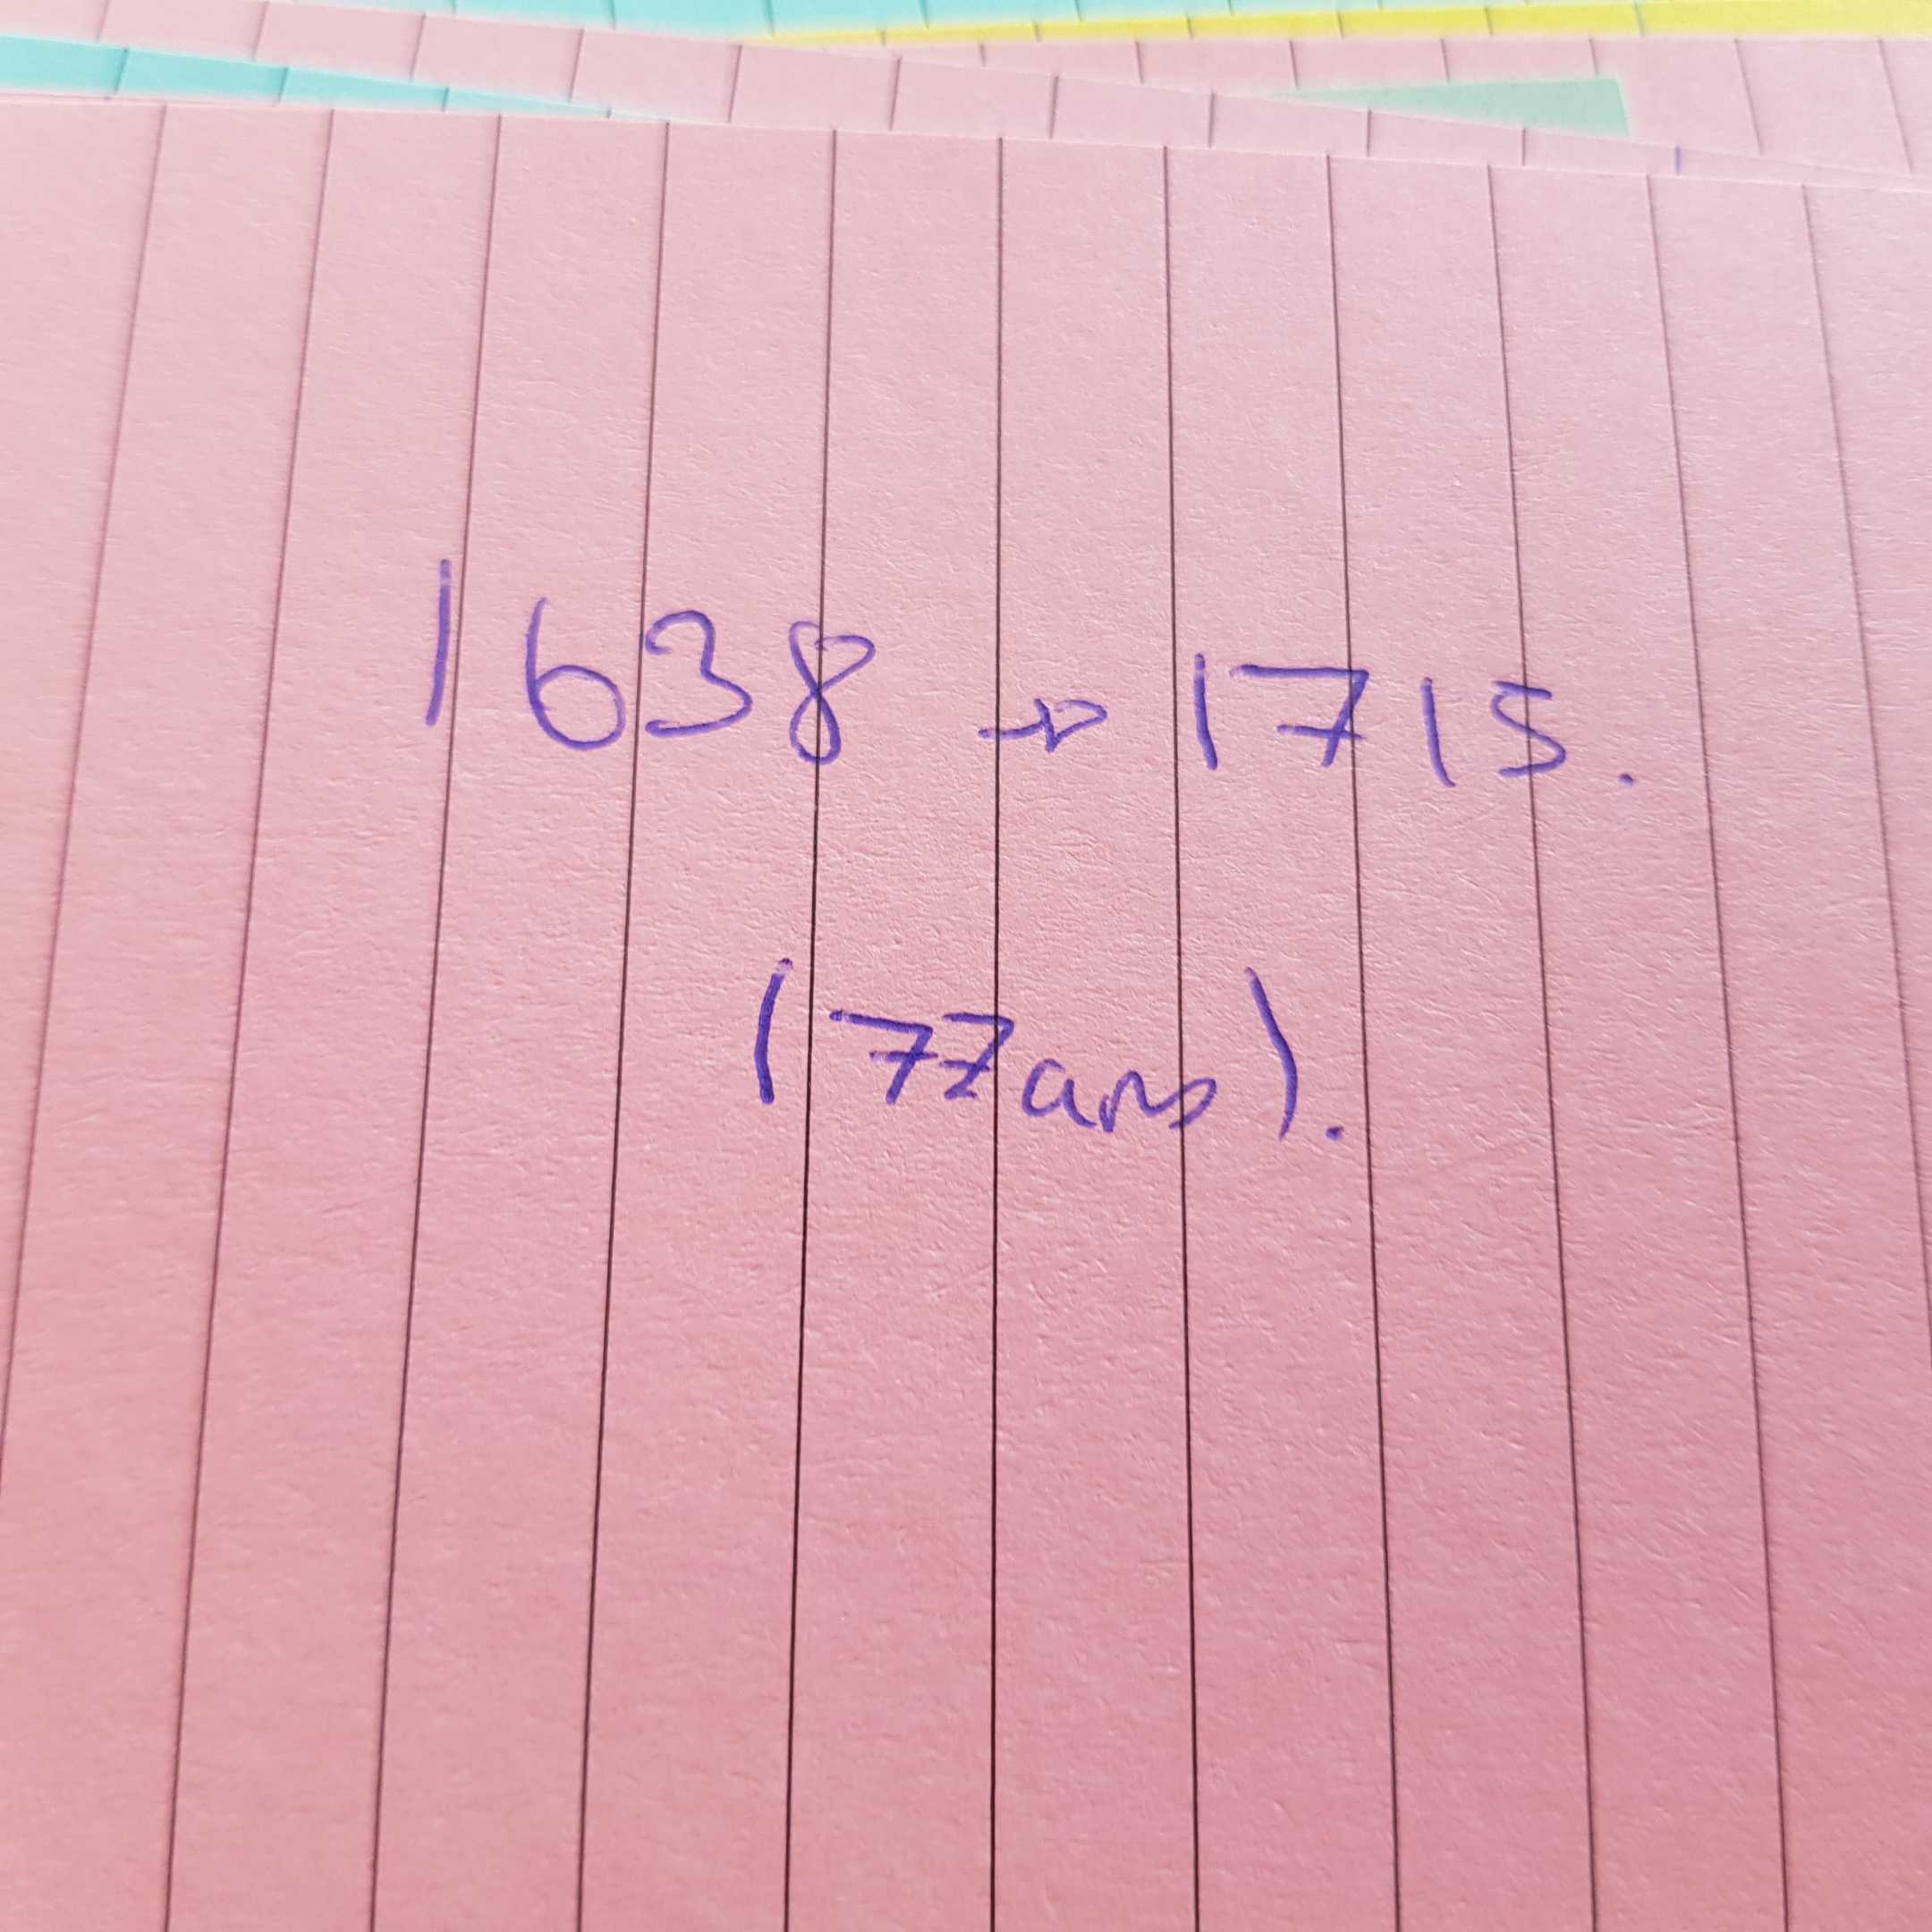 1638 → 1715.
(77ans).